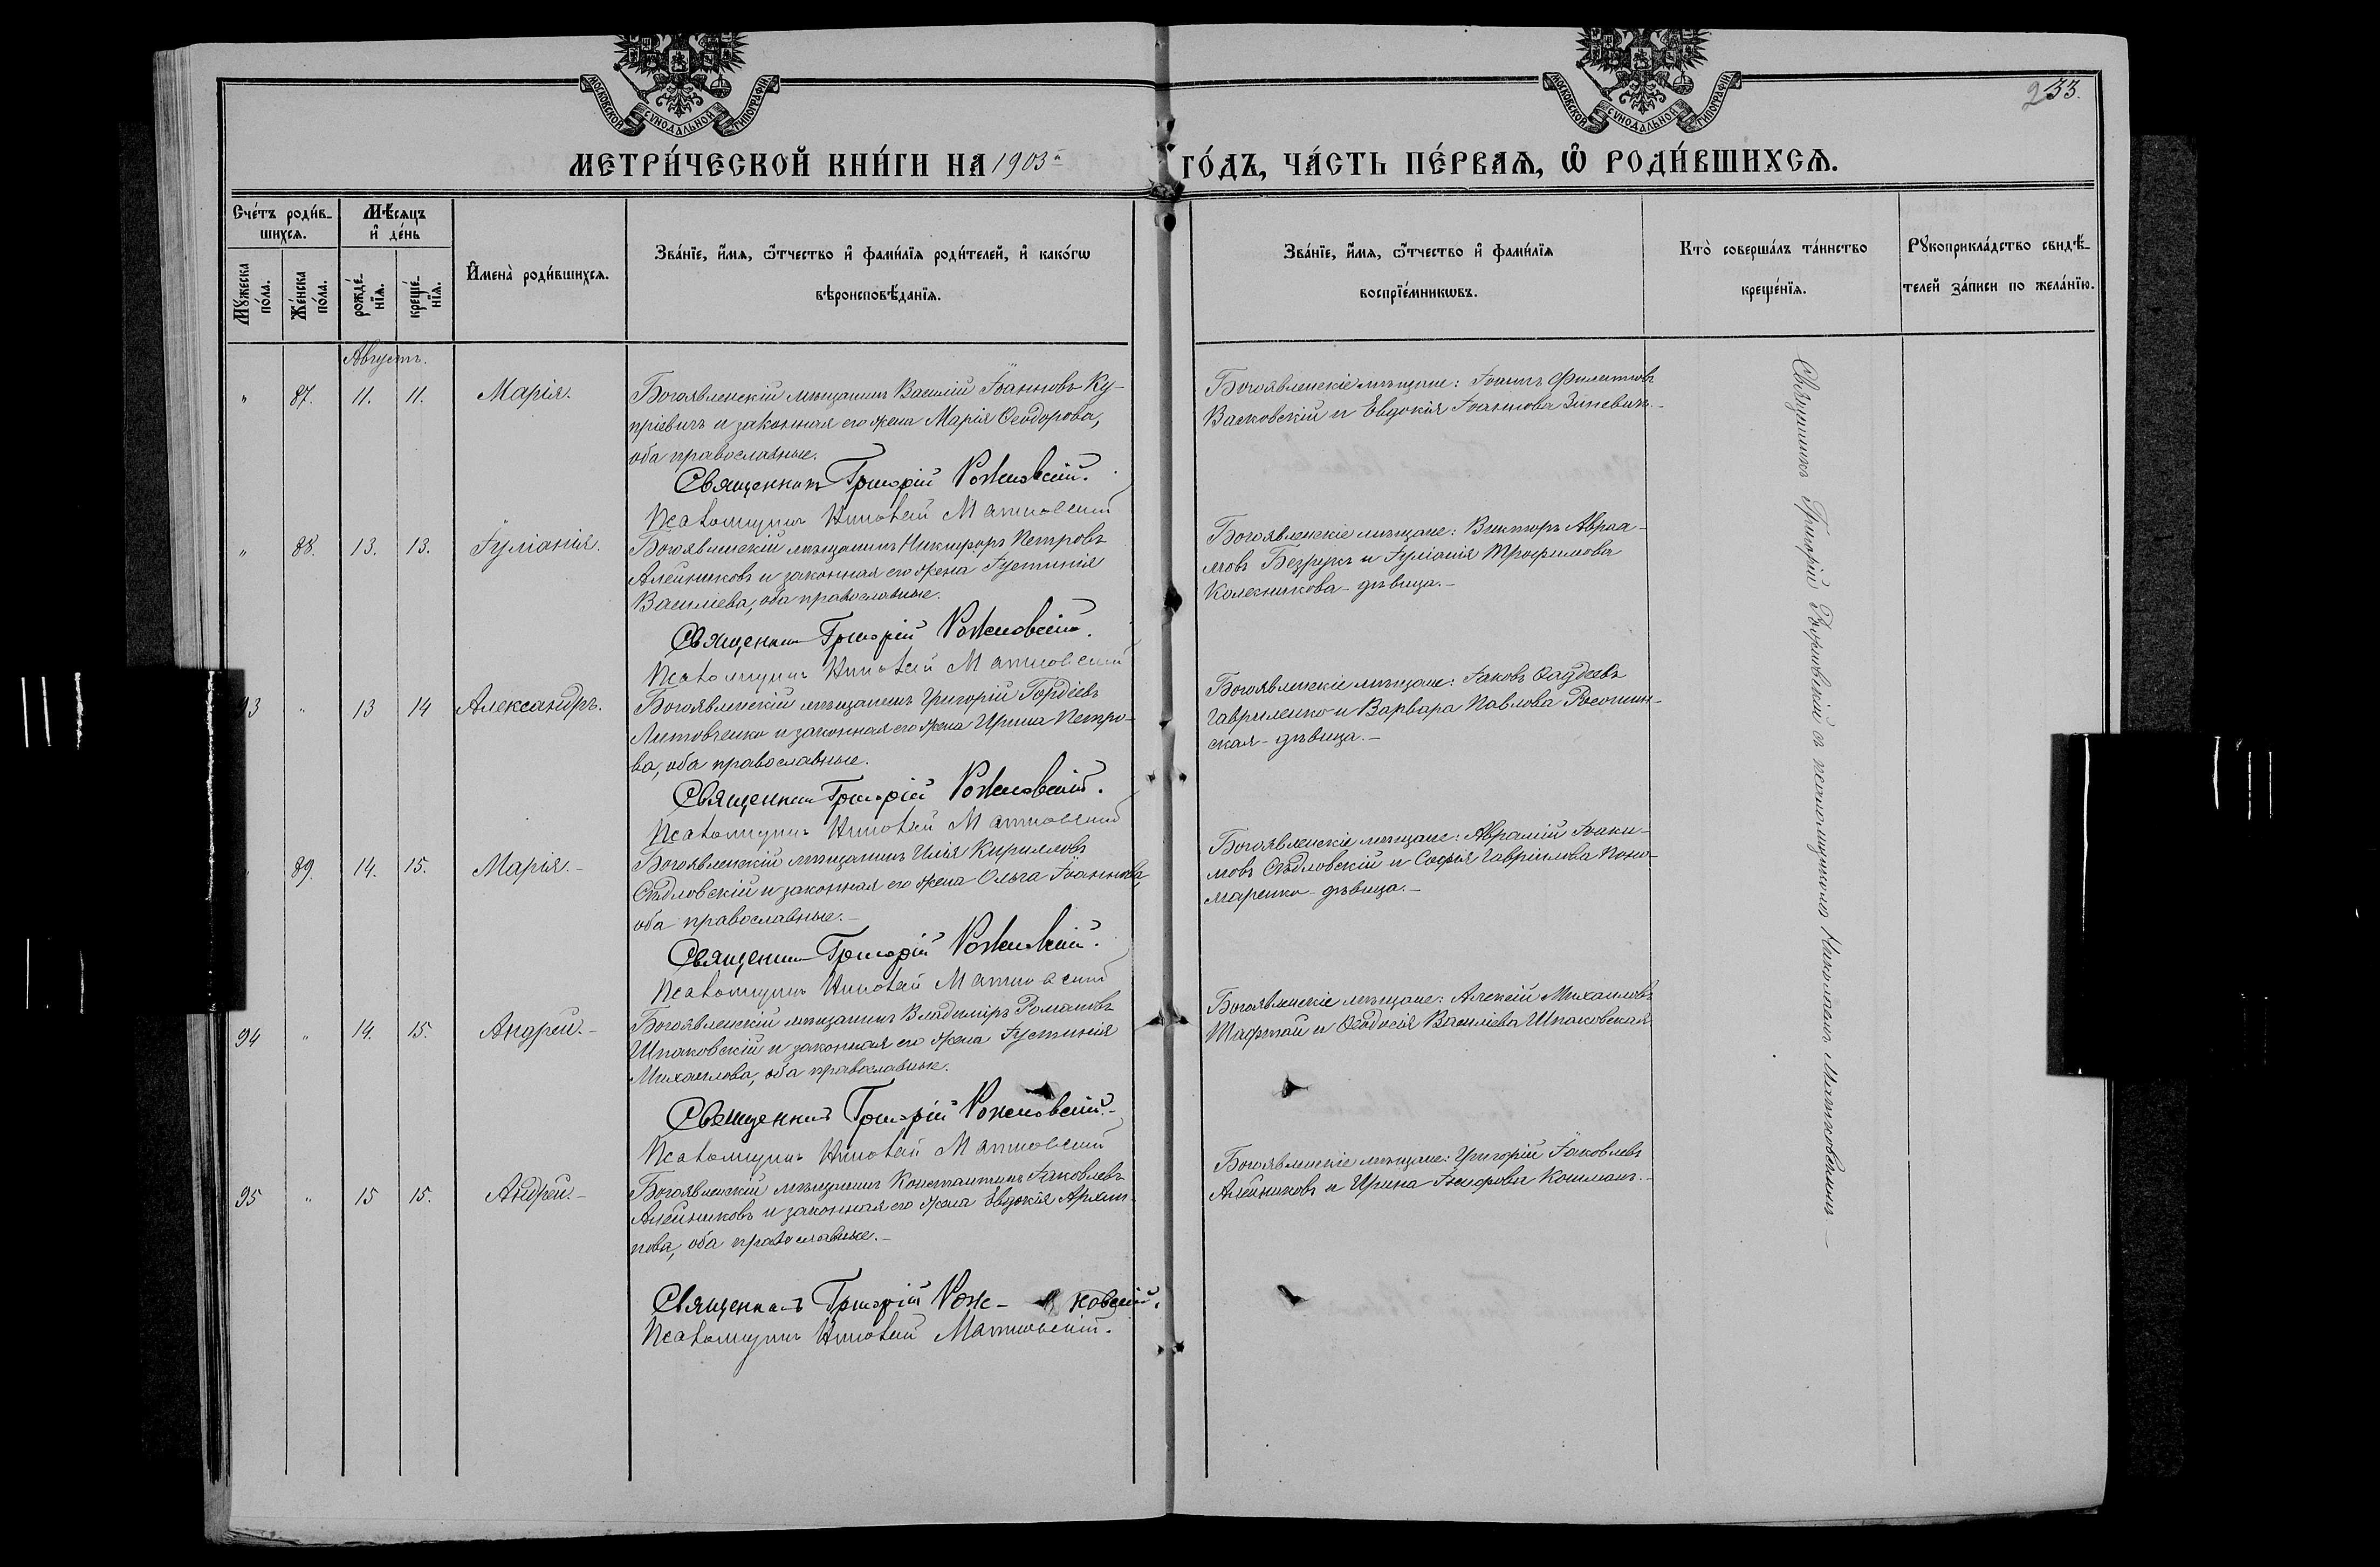 МОСКОВСКОЙ СѴНОДАЛЬНОЙ ТИПОГРАФІИ
МОСКОВСКОЙ СѴНОДАЛЬНОЙ ТИПОГРАФІИ
233.
МЕТРИ́ЧЕСКОЙ КНИ́ГИ НА 1903й ГО́ДЪ, ЧА́СТЬ ПЕ́РВАѦ, Ѽ РОДИ́ВШИХСѦ.
Сче́тъ роди́в-
шихсѧ.
Мꙋ́жеска
по́ла.
Же́нска
по́ла.
Мѣ́сяцъ
и҆ де́нь
рожде́-
нїѧ.
креще́-
нїѧ.
И҆мена̀ роди́вшихсѧ.
Зва́нїе, и҆́мѧ, ѻ҆́тчество и҆ фами́лїѧ роди́телей, и҆ како́гѡ
вѣроисповѣ́данїѧ.
Зва́нїе, и҆́мѧ, ѻ҆́тчество и҆ фами́лїѧ
воспрїе́мникѡвъ.
Кто̀ соверша́лъ та́инство
креще́нїѧ.
Рꙋкоприкла́дство свидѣ́-
телей за́писи по жела́нїю.
Августъ.
" 87. 11. 11. Марія.
Богоявленскій мѣщанинъ Василій Іоанновъ Ку-
пріевичъ и законная его жена Марія Ѳеодорова,
оба православные.
Священникъ Григорій
Псаломщикъ Николай Матковскій
Богоявленскіе мѣщане: Іоаннъ Филиповъ
Васковскій и Евдокія Іоаннова Зиневичъ.-
" 88. 13. 13. Іуліанія.
Богоявленскій мѣщанинъ Никифоръ Петровъ
Алейниковъ и законная его жена Іустинія
Василіева, оба православные.
Священникъ Григорій
Псаломщикъ Николай Матковскій
Богоявленскіе мѣщане: Викторъ Авраа-
мовъ Безрукъ и Іуліанія Трофимова
Колесникова - дѣвица.-
13 14 Александръ.
Богоявленскій мѣщанинъ Григорій Гордіевъ
Литовченко и законная его жена Ирина Петро-
ва, оба православные.
Священникъ Григорій
Псаломщикъ Николай Матковскій
Богоявленскіе мѣщане: Іаковъ Ѳаддеевъ
Гавриленко и Варвара Павлова
ская - дѣвица.-
89. 14. 15. Марія.-
Богоявленскій мѣщанинъ Илія Кирилловъ
Сѣдловскій и законная его жена Ольга Іоаннова,
оба православные.-
Священникъ Григорій
Псаломщикъ Николай Матковскій
Богоявленскіе мѣщане: Авраамій Іоаки-
мовъ Сѣдловскій и Софія Гавріилова Поно-
маренко - дѣвица.-
94 " 14. 15. Андрей.-
Богоявленскій мѣщанинъ Владиміръ Романовъ
Шпаковскій и законная его жена Іустинія
Михаилова, оба православные.
Священникъ Григорій
Псаломщикъ Николай Матковскій
Богоявленскіе мѣщане: Алексій Михаиловъ
Шафтай и Ѳеодосія Василіева Шпаковская
95 " 15 15. Андрей.-
Богоявленскій мѣщанинъ Константинъ Іаковлевъ
Алейниковъ и законная его жена Евдокія Архип-
пова, оба православные.-
Священникъ Григорій
Псаломщикъ Николай Матковскій.
Богоявленскіе мѣщане: Григорій Іаковлевъ
Алейниковъ и Ирина Кошманъ.-
Священникъ Григорій съ псаломщикомъ Николаемъ Матковскимъ-